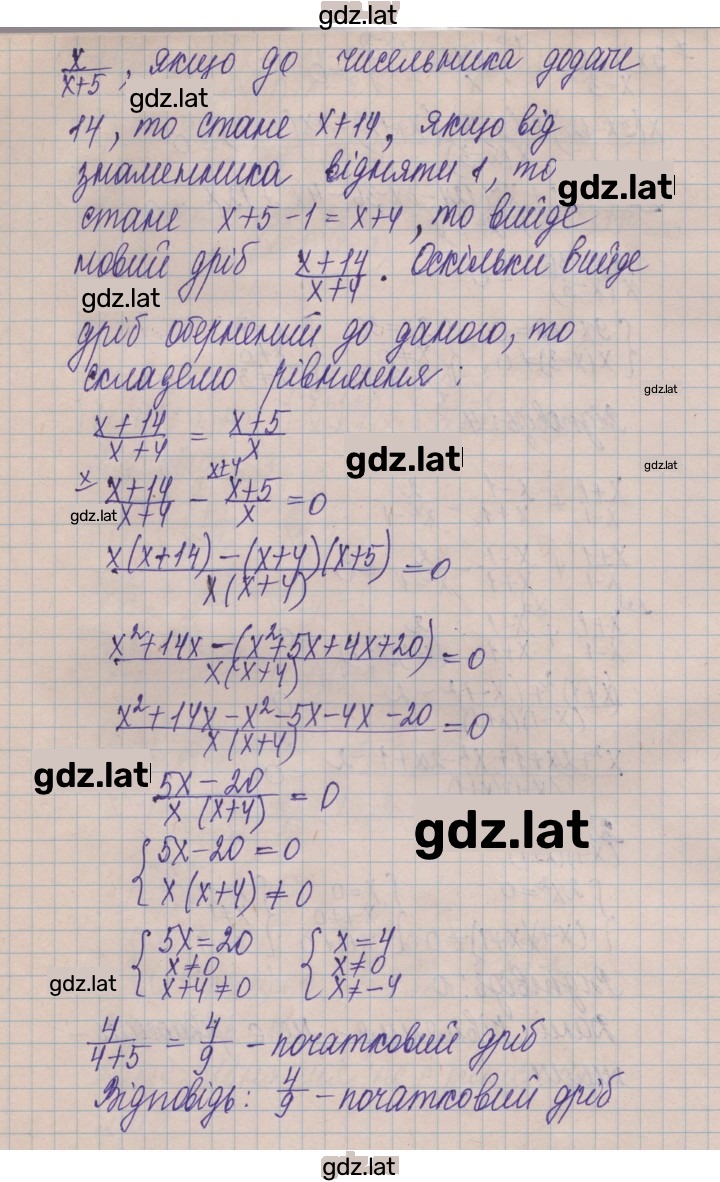 gdz.lat
x/(x+5), якщо до чисельника додати
gdz.lat
14, то стане x+14, якщо від
знаменника відняти 1, то
gdz.lat
стане x+5-1=x+4, то вийде
новий дріб (x+14)/(x+4). Оскільки вийде
gdz.lat
дріб обернений до даного, то
складемо рівняння:
gdz.lat
(x+14)/(x+4) = (x+5)/x
gdz.lat
gdz.lat
x x+4
(x+14)/(x+4) - (x+5)/x = 0
gdz.lat
(x(x+14)-(x+4)(x+5))/(x(x+4)) = 0
(x²+14x-(x²+5x+4x+20))/(x(x+4)) = 0
(x²+14x-x²-5x-4x-20)/(x(x+4)) = 0
gdz.lat
(5x-20)/(x(x+4)) = 0
gdz.lat
{ 5x-20=0
x(x+4)≠0
{ 5x=20 { x=4
x≠0 x≠0
gdz.lat
x+4≠0 x≠-4
4/(4+5) = 4/9 - початковий дріб
Відповідь: 4/9 - початковий дріб
gdz.lat